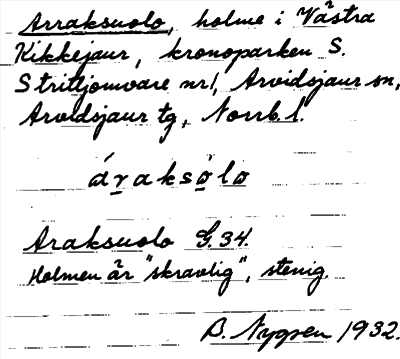 Arraksuolo, holme i Västra
Kikkejaur, kronoparken S.
Strittjomvare nr 1, Arvidsjaur sn,
Arvidsjaur tg, Norrb. l.
áraksålå
Araksuolo G. 34.
Holmen är "skravlig", stenig.
B. Nygren 1932.